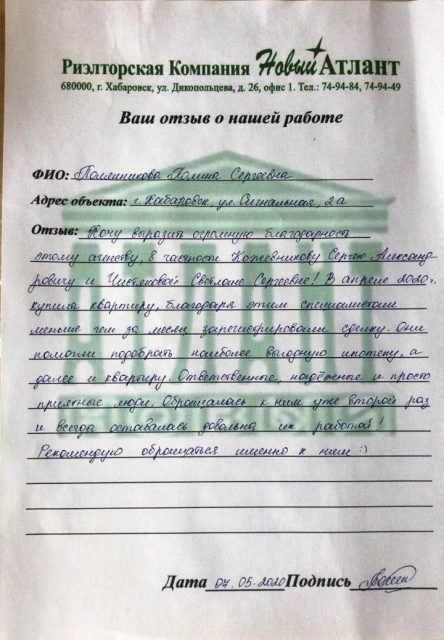 Риэлторская Компания Новый Атлант
680000, г. Хабаровск, ул. Дикопольцева, д. 26, офис 1. Тел.: 74-94-84, 74-94-49
Ваш отзыв о нашей работе
ФИО: Полина Сергеевна
Адрес объекта: г. Хабаровск, ул. Сигнальная, 2а
Отзыв: Хочу выразить огромную благодарность
этому агенству, в частности Кожевникову Сергею Александ-
ровичу и Чистяковой Светлане Сергеевне! В апреле 2020г.
купила квартиру, благодаря этим специалистам
меньше чем за месяц зарегистрировали сделку. Они
помогли подобрать наиболее выгодную ипотеку, а
далее и квартиру. Ответственные, надёжные и просто
приятные люди. Обращалась к ним уже второй раз
и всегда оставалась довольна их работой!
Рекомендую обращаться именно к ним :)
Дата 07.05.2020 Подпись